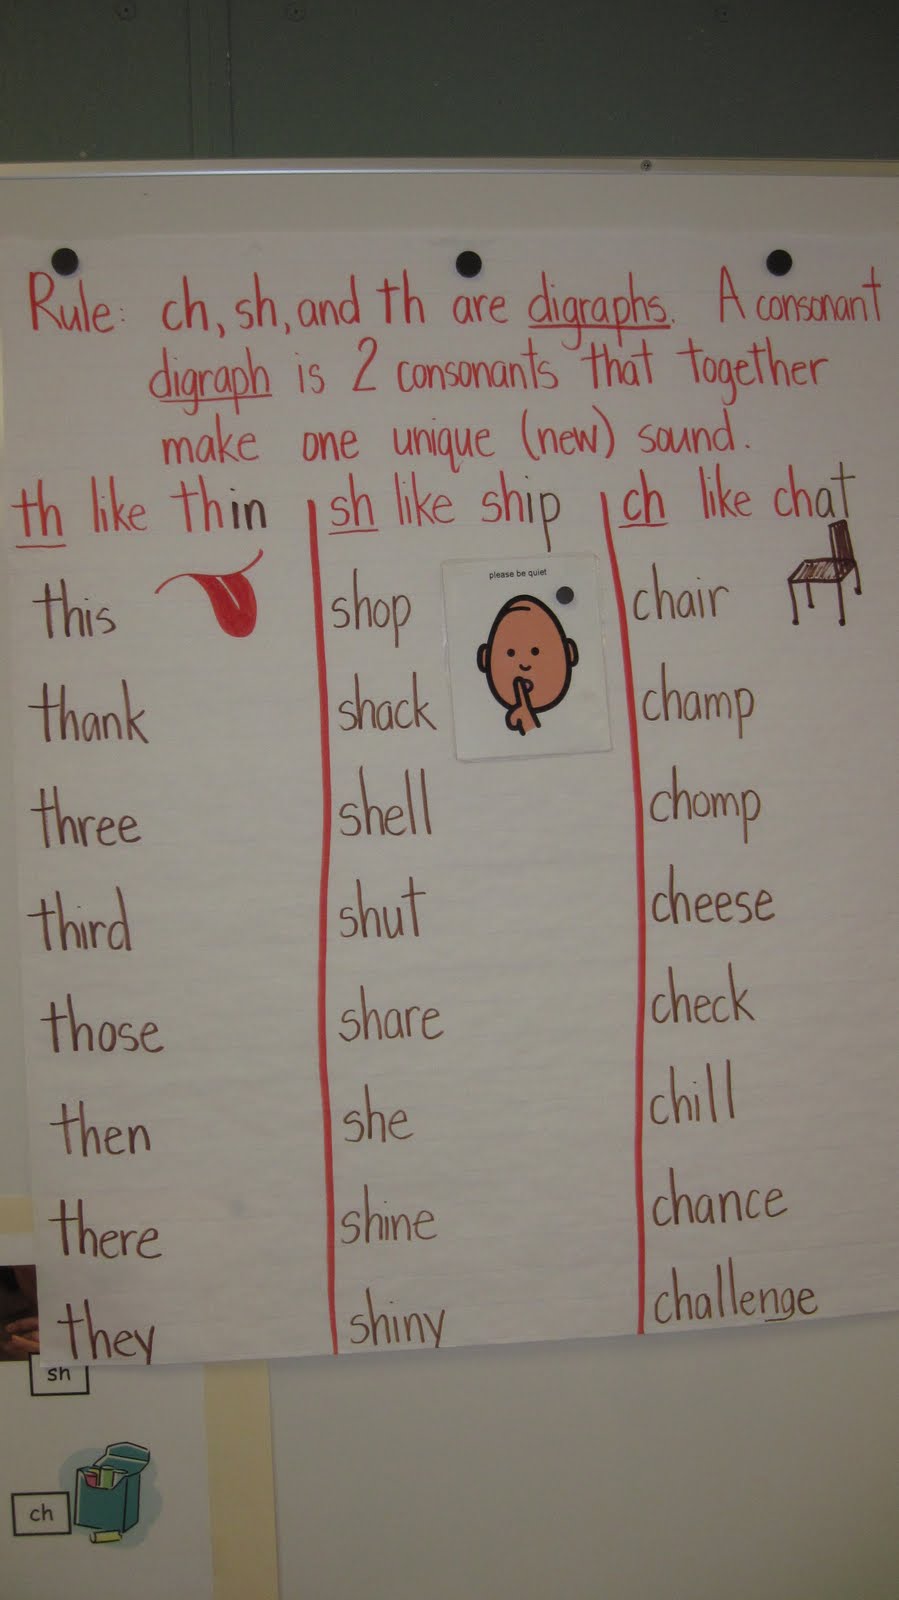 Rule: ch, sh, and th are digraphs. A consonant
digraph is 2 consonants that together
make one unique (new) sound.
th like thin
this
thank
three
third
those
then
there
they
sh like ship
please be quiet
shop
shack
shell
shut
share
she
shine
shiny
ch like chat
chair
champ
chomp
cheese
check
chill
chance
challenge
sh
ch